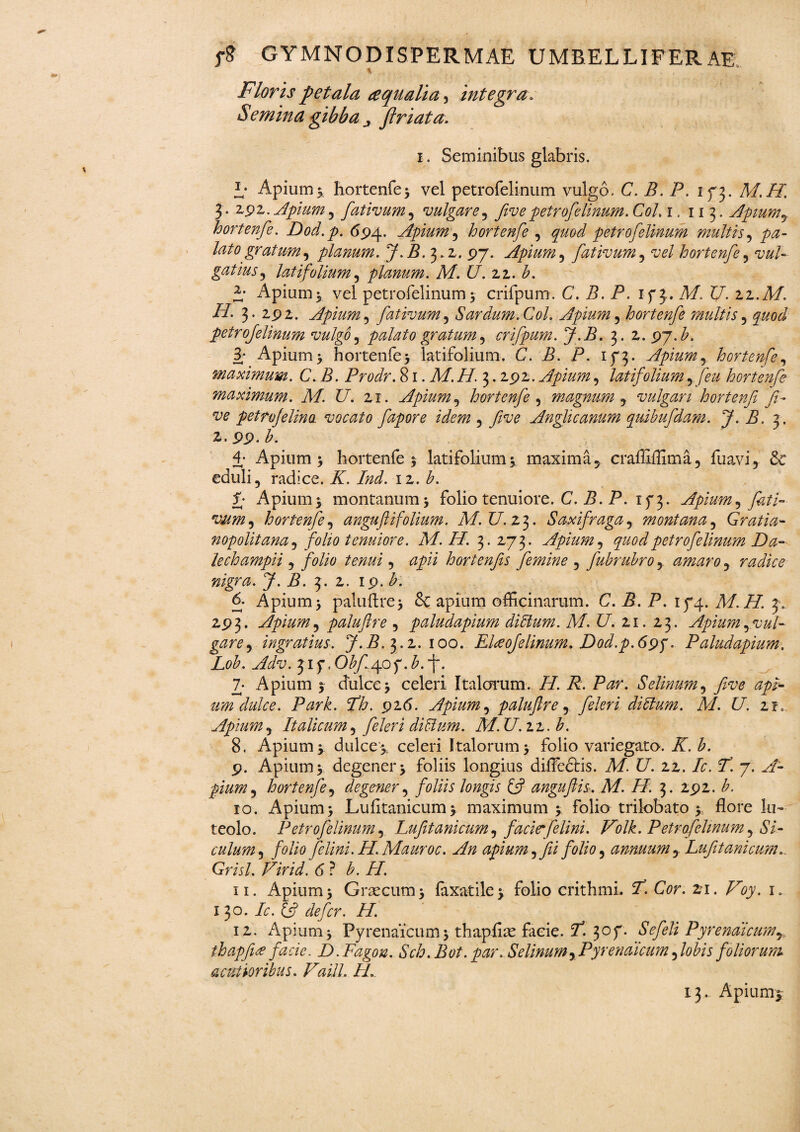 58 GYMNODISPERMAE UMBELLIFERAE.
Floris petala æqualia, integra.
Semina gibba, ſtriata.
1. Seminibus glabris.
1. Apium; hortenſe; vel petroſelinum vulgò. C. B. P. 153. M. H.
3. 292. Apium, ſativum, vulgare, ſive petroſelinum. Col. 1. 113. Apium,
hortenſe. Dod. p. 694. Apium, hortenſe, quod petroſelinum multis, pa-
lato gratum, planum. J. B. 3. 2. 97. Apium, ſativum, vel hortenſe, vul-
gatius, latifolium, planum. M. U. 22. b.
2. Apium; vel petroſelinum; criſpum. C. B. P. 153. M. U. 22. M.
H. 3. 292. Apium, ſativum, Sardum. Col. Apium, hortenſe multis, quod
petroſelinum vulgò, palato gratum, criſpum. J. B. 3. 2. 97. b.
3. Apium; hortenſe; latifolium. C. B. P. 153. Apium, hortenſe,
maximum. C. B. Prodr. 81. M. H. 3. 292. Apium, latifolium, ſeu hortenſe
maximum. M. U. 21. Apium, hortenſe, magnum, vulgari hortenſi ſi-
ve petroſelino vocato ſapore idem, ſive Anglicanum quibuſdam. J. B. 3.
2. 99. b.
4. Apium; hortenſe; latifolium; maximâ, craſſiſſimâ, ſuavi, &
eduli, radice. K. Ind. 12. b.
5. Apium; montanum; folio tenuiore. C. B. P. 153. Apium, ſati-
vum, hortenſe, anguſtifolium. M. U. 23. Saxifraga, montana, Gratia-
nopolitana, folio tenuiore. M. H. 3. 273. Apium, quod petroſelinum Da-
lechampii, folio tenui, apii hortenſis ſemine, ſubrubro, amaro, radice
nigra. J. B. 3. 2. 19. b.
6. Apium; paluſtre; & apium officinarum. C. B. P. 154. M. H. 3.
293. Apium, paluſtre, paludapium dictum. M. U. 21. 23. Apium, vul-
gare, ingratius. J. B. 3. 2. 100. Elæoſelinum. Dod. p. 695. Paludapium.
Lob. Adv. 315. Obſ. 405. b. †.
7. Apium; dulce; celeri Italorum. H. R. Par. Selinum, ſive api-
um dulce. Park. Th. 926. Apium, paluſtre, ſeleri dictum. M. U. 21.
Apium, Italicum, ſeleri dictum. M. U. 22. b.
8. Apium; dulce; celeri Italorum; folio variegato. K. b.
9. Apium; degener; foliis longius diſſectis. M. U. 22. Ic. T. 7. A-
pium, hortenſe, degener, foliis longis & anguſtis. M. H. 3. 292. b.
10. Apium; Luſitanicum; maximum; folio trilobato; flore lu-
teolo. Petroſelinum, Luſitanicum, facie felini. Volk. Petroſelinum, Si-
culum, folio felini. H. Mauroc. An apium, ſii folio, annuum, Luſitanicum.
Griſl. Virid. 6? b. H.
11. Apium; Græcum; ſaxatile; folio crithmi. T. Cor. 21. Voy. 1.
130. Ic. & deſcr. H.
12. Apium; Pyrenaïcum; thapſiæ facie. T. 305. Seſeli Pyrenaïcum,
thapſiæ facie. D. Fagon. Sch. Bot. par. Selinum, Pyrenaïcum, lobis foliorum
acutioribus. Vaill. H.
13. Apium;